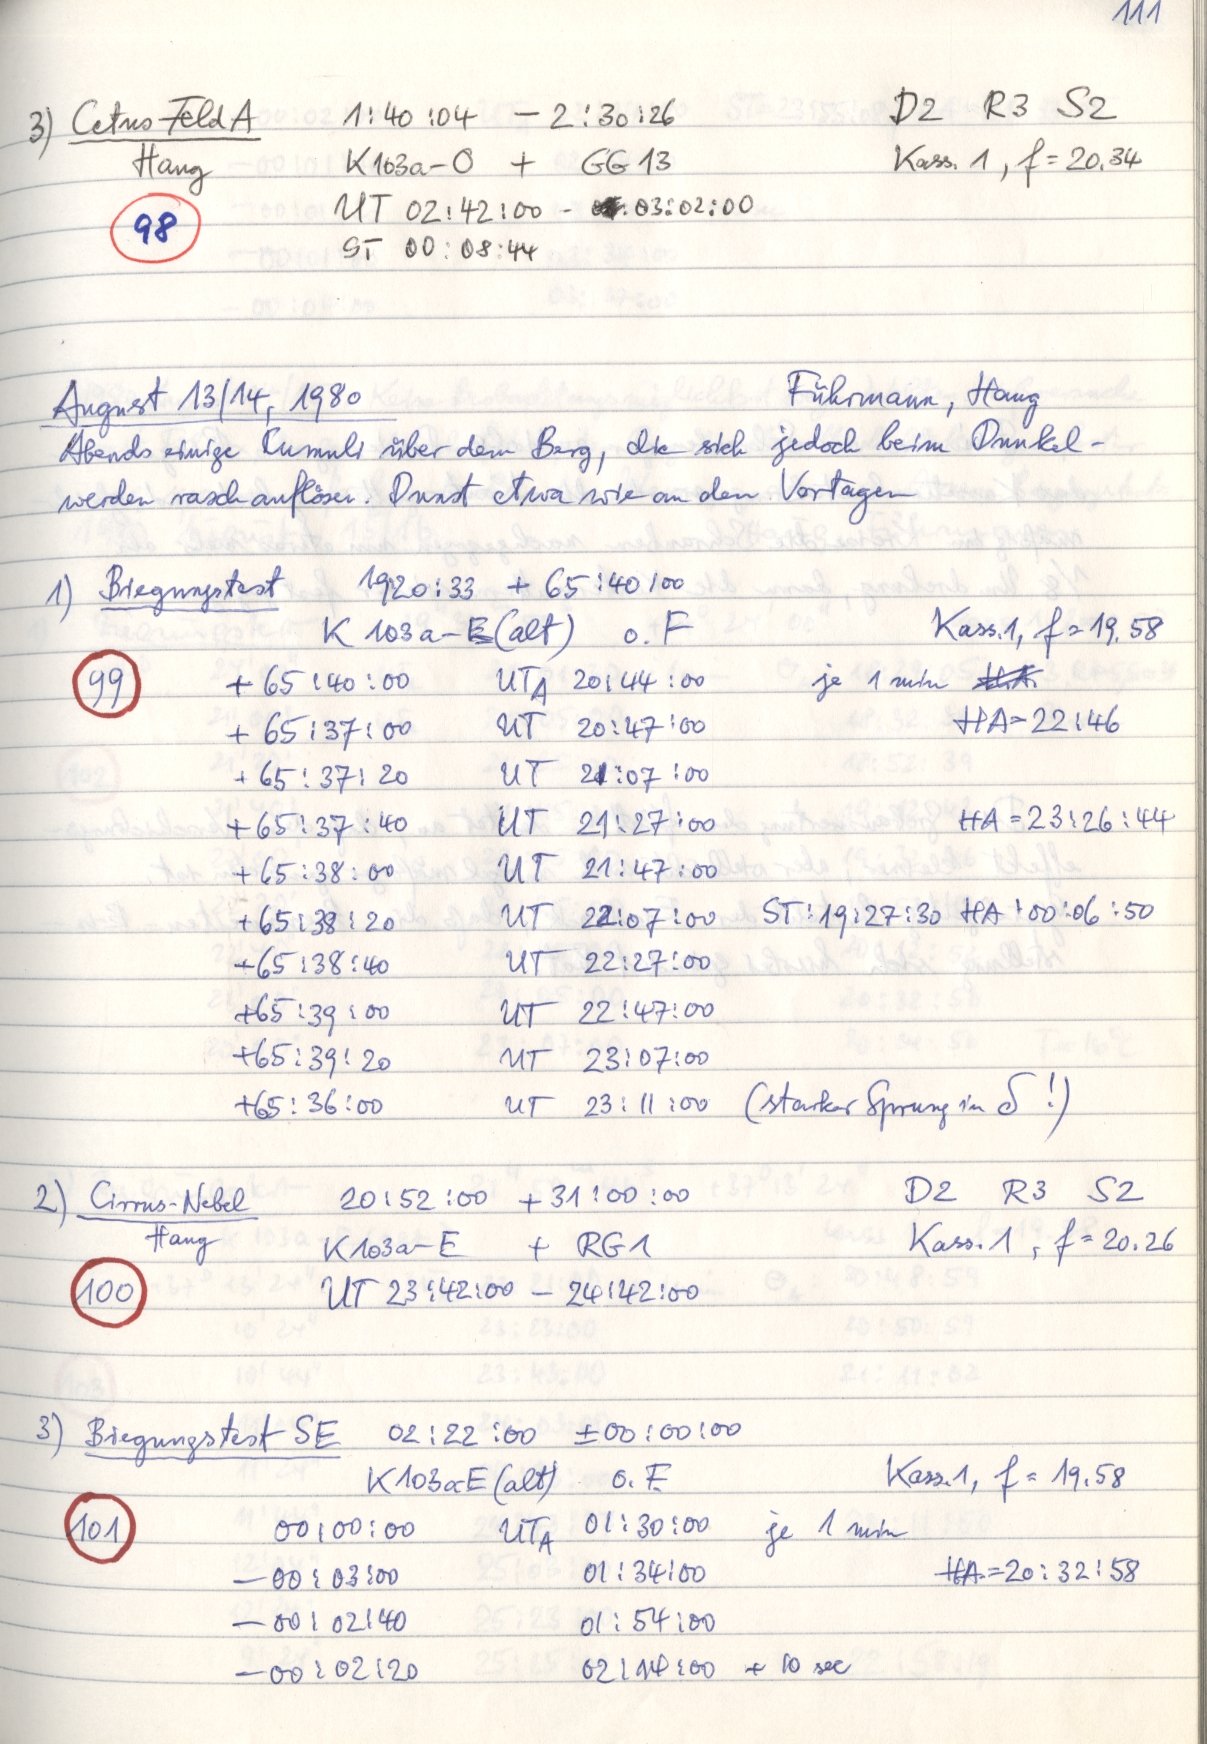 111
3) Cetus-Feld A 1:40:04 - 2:30:26 D2 R3 S2
Haug K103a-O + GG13 Kass. 1, f = 20.34
98 UT 02:42:00 - 03:02:00
ST 00:08:44
August 13/14, 1980 Führmann, Haug
Abends einige Kumuli über dem Berg, die sich jedoch beim Dunkel-
werden rasch auflösen. Dunst etwa wie an den Vortagen
1) Biegungstest 1920:33 + 65:40:00
K 103a-E (alt) o. F Kass. 1, f = 19.58
99 + 65:40:00 UTA 20:44:00 je 1 min H.A.
+ 65:37:00 UT 20:47:00 HA = 22:46
+ 65:37:20 UT 21:07:00
+ 65:37:40 UT 21:27:00 HA = 23:26:44
+ 65:38:00 UT 21:47:00
+ 65:38:20 UT 22:07:00 ST: 19:27:30 HA: 00:06:50
+ 65:38:40 UT 22:27:00
+ 65:39:00 UT 22:47:00
+ 65:39:20 UT 23:07:00
+ 65:36:00 UT 23:11:00 (starker Sprung in δ!)
2) Cirrus-Nebel 20:52:00 + 31:00:00 D2 R3 S2
Haug K103a-E + RG1 Kass. 1, f = 20.26
100 UT 23:42:00 - 24:42:00
3) Biegungstest SE 02:22:00 ±00:00:00
K103aE (alt) o. F. Kass. 1, f = 19.58
101 00:00:00 UTA 01:30:00 je 1 min
- 00:03:00 01:34:00 HA. = 20:32:58
- 00:02:40 01:54:00
- 00:02:20 02:14:00 + 10 sec